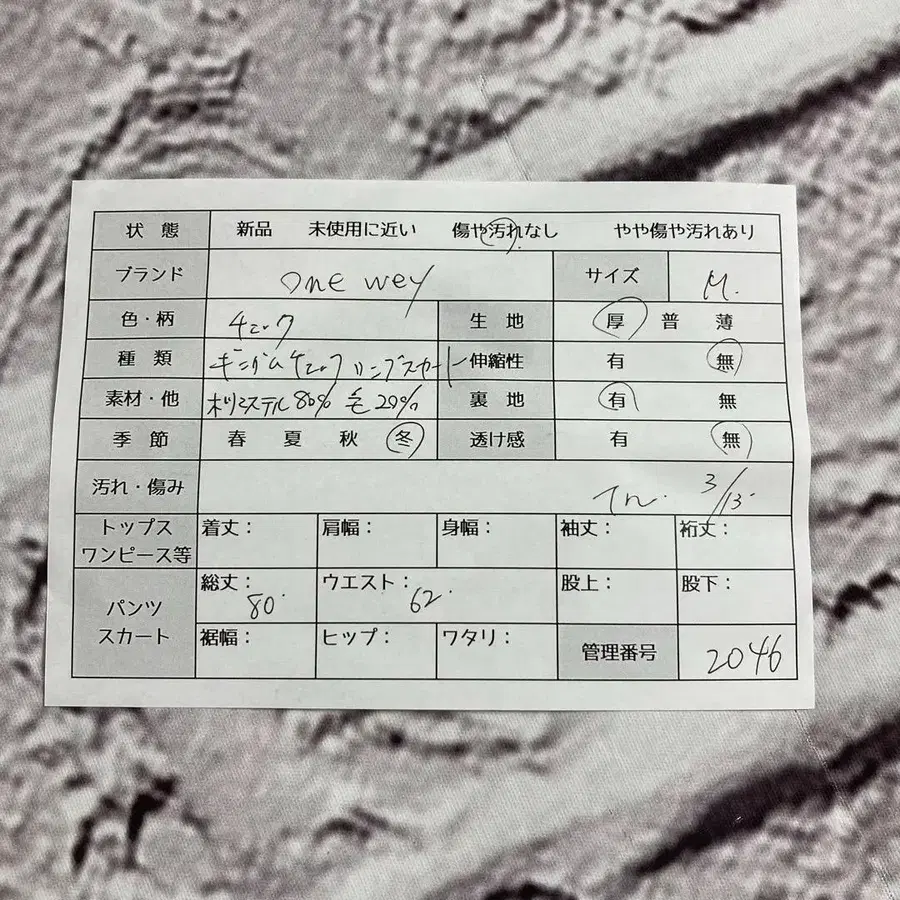 状態 新品 未使用に近い 傷や汚れなし やや傷や汚れあり
ブランド one wey サイズ M.
色・柄 チェック 生地 厚 普 薄
種類 ギンガムチェック ロングスカート 伸縮性 有 無
素材・他 ポリエステル80% 毛20% 裏地 有 無
季節 春 夏 秋 冬 透け感 有 無
汚れ・傷み 3/13
トップス ワンピース等 着丈： 肩幅： 身幅： 袖丈： 裄丈：
パンツ スカート 総丈： 80 ウエスト： 62 股上： 股下：
裾幅： ヒップ： ワタリ： 管理番号 2046